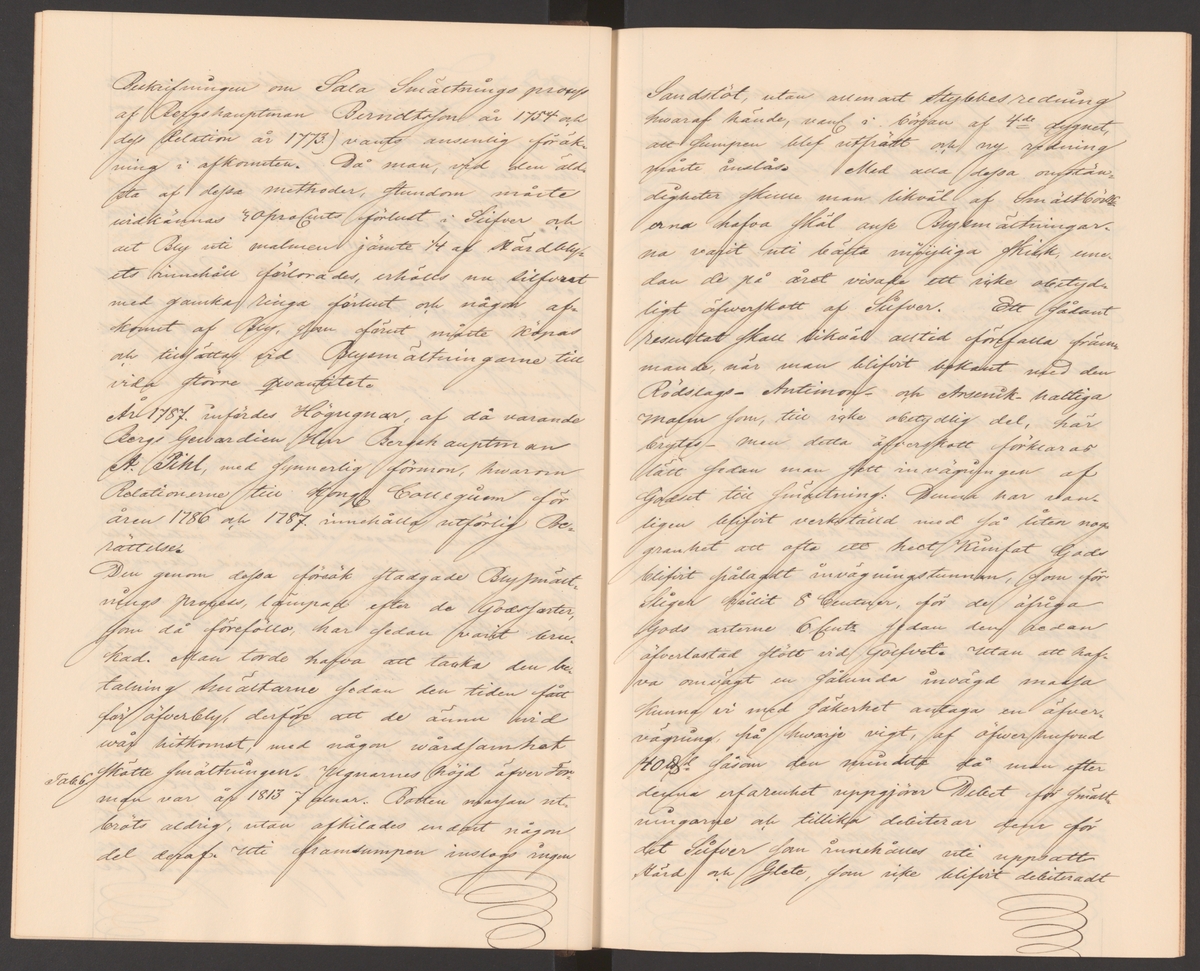 Beskrifningen om Sala Smältnings process
af Bergshauptman Berndtson år 1754 och
dess Relation år 1773) vants ansenlig förök-
ning i afkomsten. Då man, vid den äld-
sta af dessa methoder, stundom måste
vidkännas 40 proCents förlust i Silfver och
allt Bly uti malmen jämte 1/4 af Härdbly-
ets innehåll förlorades, erhölls nu silfvret
med ganska ringa förlust och någon af-
komst af Bly, som förut måste köpas
och tillsättas vid Blysmältningarne till
vida större qvantitet.
År 1787 infördes Högugnar, af då varande
Bergs Gevardien Herr Bergshauptman
A. Pihl, med synnerlig förmon, hwarom
Relationerne till Kongl Collegium för
åren 1786 och 1787 innehålla utförlig Be-
rättelse.
Den genom dessa försök stadgade Blysmält-
nings process, lämpad efter de Godssorter,
som då föreföllo, har sedan varit bru-
kad. Man torde hafva att tacka den be-
talning Smältarne sedan den tiden fått
för öfverbly, derföre att de ännu vid
wår hitkomst, med någon wårdsamhet
Tab 6 skötte smältningen. Ugnarnes höjd äfver For-
man var år 1813 7 alnar. Botten massan ut-
bröts aldrig, utan afkilades endast någon
del deraf. Uti framsumpen inslogs ingen
Sandstöt, utan allenast Stybbesredning
hwaraf hände, vanl i början af 4de dygnet,
att Sumpen blef utfrätt och ny redning
måste inslås. Med alla dessa omstän-
digheter skulle man likväl af Smältböck-
erna hafva skäl anse Blysmältningar-
na varit uti bästa möjeliga skick, eme-
dan de på året visade ett icke obetyd-
ligt öfwerskott af Silfver. Ett sådant
resultat skall likväl alltid förefalla främ-
mande, när man blifvit bekant med den
Rödslags- Antimon- och Arsenik-haltiga
Malm som, till icke obetydlig del, här
brytes - men detta öfverskott förklaras
lätt sedan man sett invägningen af
Godset till smältning: Denna har van-
ligen blifvit verkställd med så liten nog-
granhet att ofta ett helt Kumfat Gods
blifvit pålagdt invägningstunnan, som för
Sliger hållit 8 Centner, för de öfriga
Gods arterne 6 Cent. sedan den redan
öfverlastad stött vid Golfvet. Utan att haf-
va omvägt en sålunda invägd massa
kunna vi med säkerhet antaga en öfver-
vägning, på hwarje vigt, af öfwerhufvud
40 ℔ såsom den mindsta då man efter
denna erfarenhet uppgjörer Debet för smält-
ningarne och tillika debiterar dem för
det Silfver som innehålles uti uppsatt
Härd och Glete, som icke blifvit debiteradt